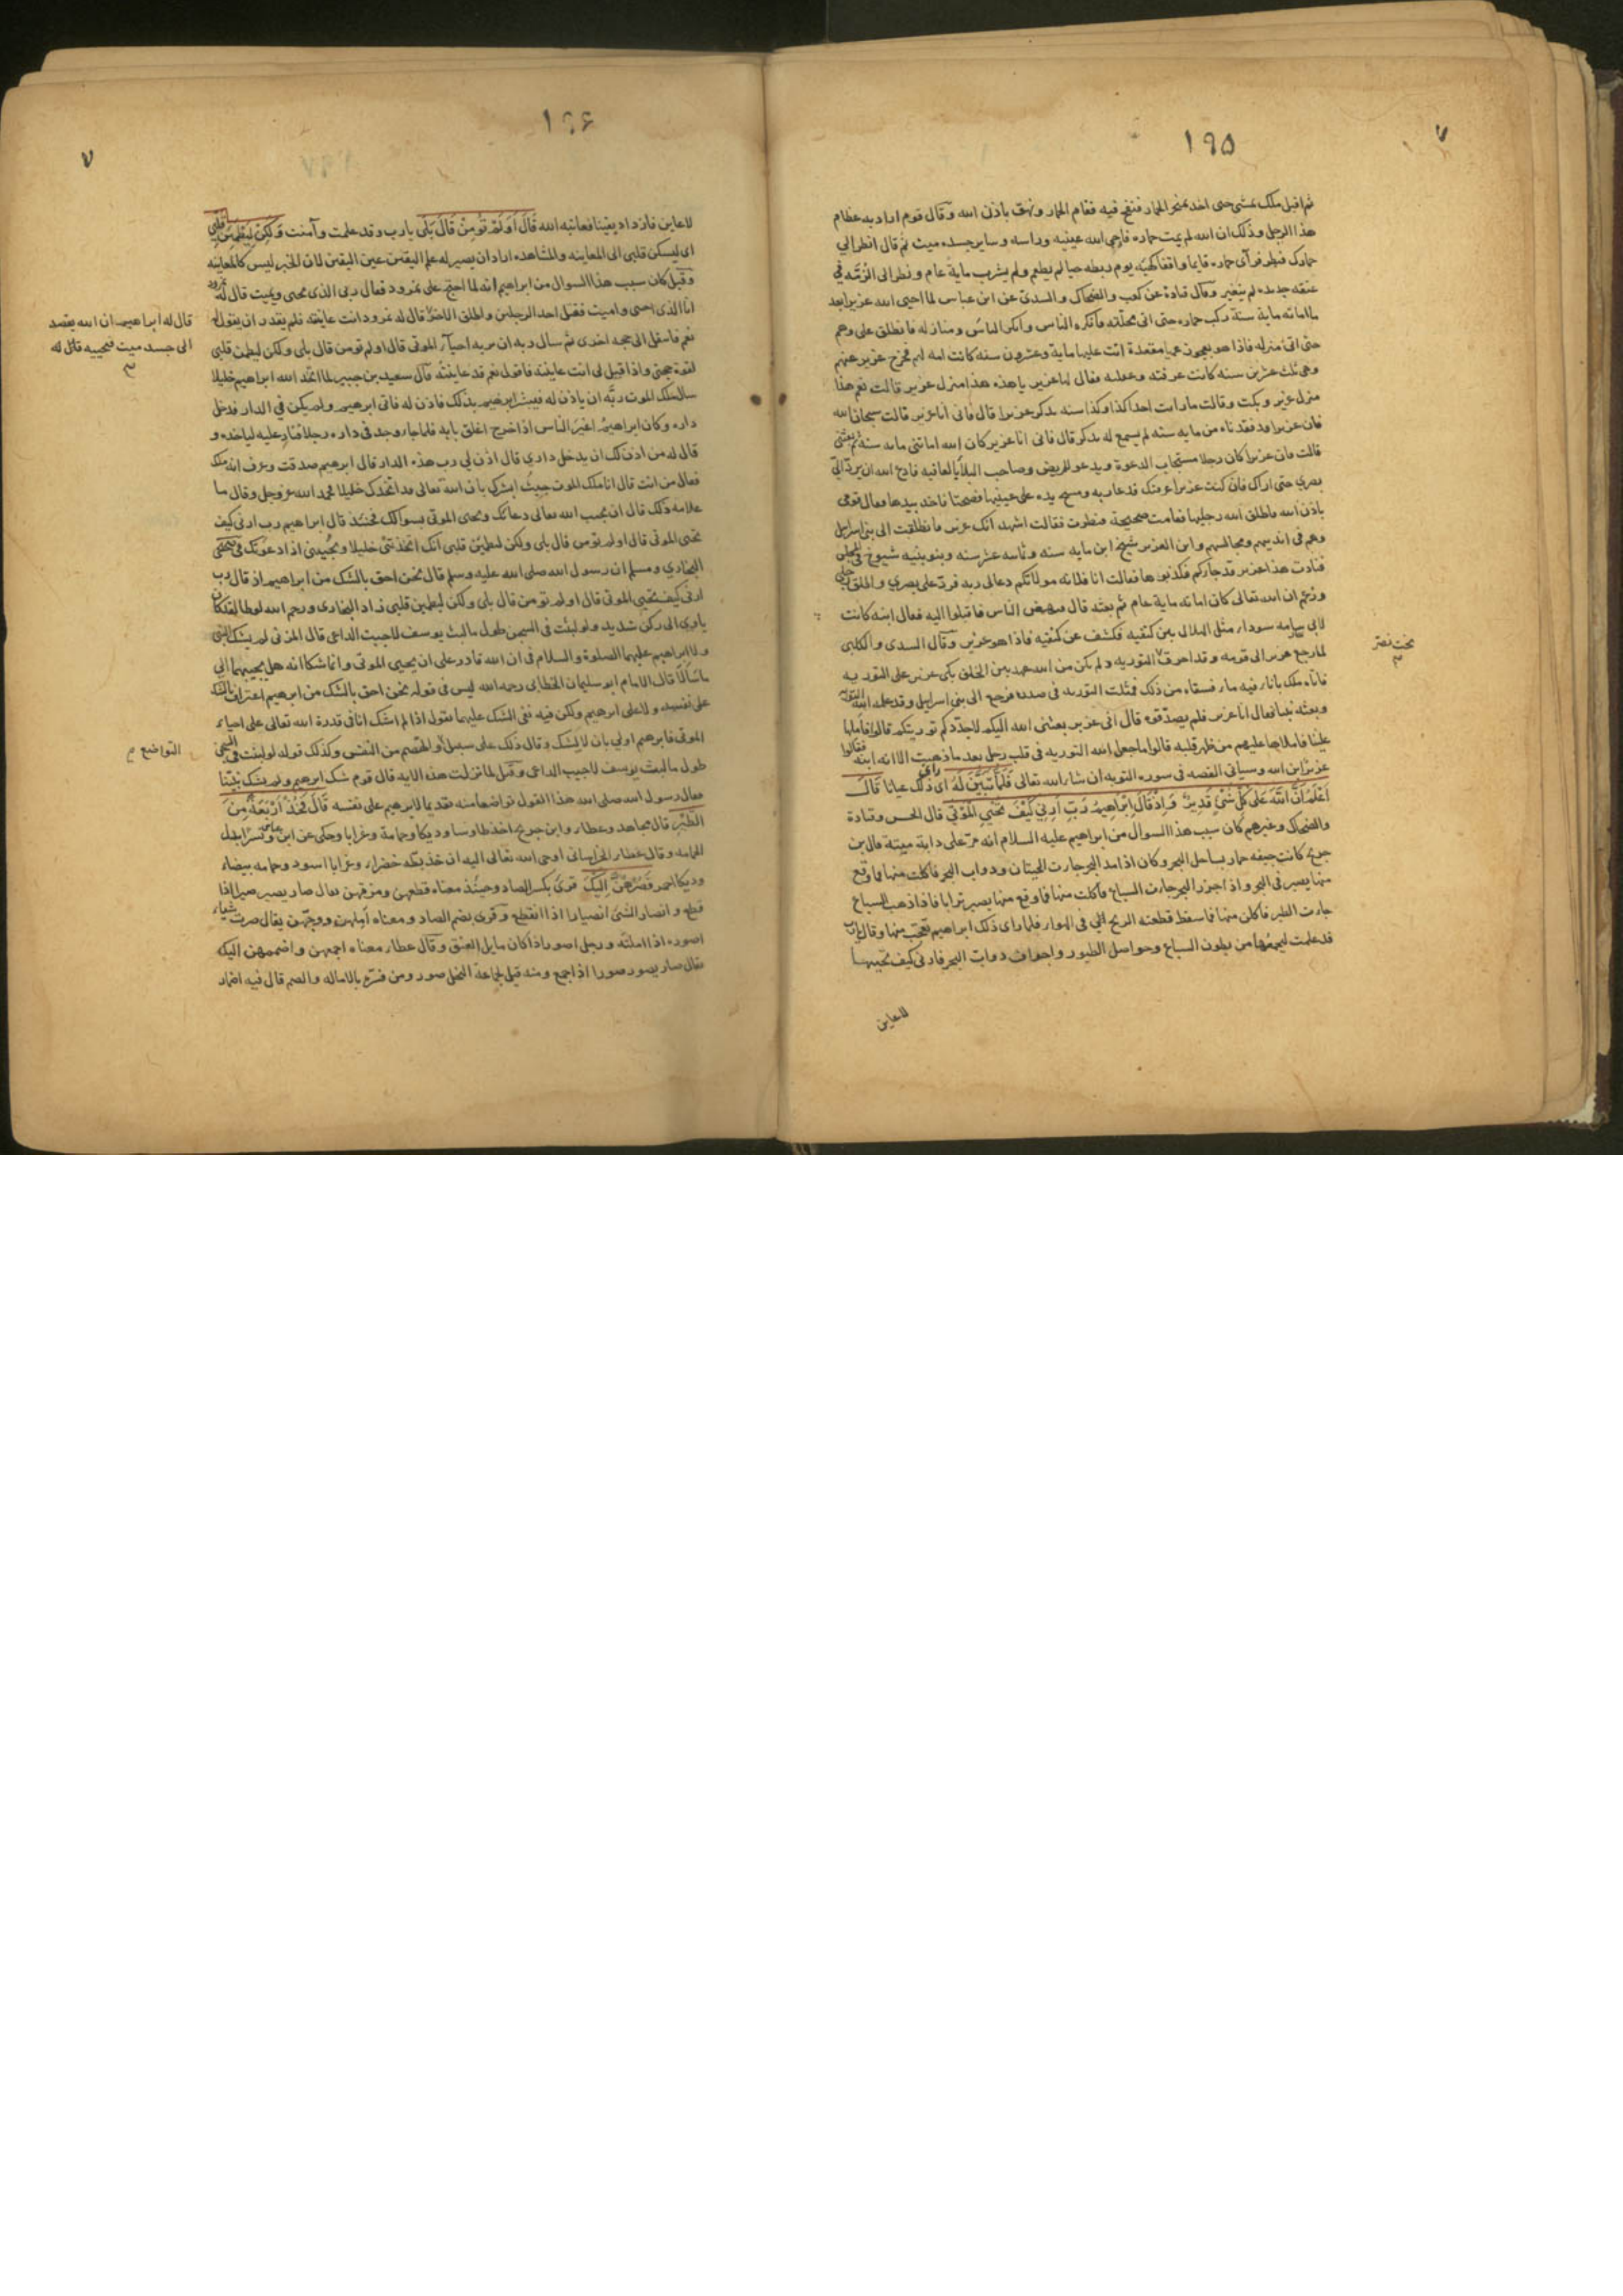 ١٩٥
٧
ثم اقبل ملك يمشى حتى اخذ بمنخر الحمار فنفخ فيه فقام الحمار ونهق باذن الله وقال قوم اراد به عظام
هذا الرجل وذلك ان الله لم يمت حماره فاحيى الله عينيه وراسه وساير جسده ميت ثم قال انظر الى
حمارك فنظر فرآى حماره قايما واقفا كهيئه يوم ربطه حيا لم يطعم ولم يشرب ماية عام ونظر الى الرمه فى
عنقه جديده لم يتغير وقال قتادة عن كعب والضحاك والسدى عن ابن عباس لما احيى الله عزيرا بعد
ما اماته ماية سنة ركب حماره حتى اتى محلّته فأنكره الناس وانكر الناس ومنازله فانطلق على وهم
حتى اتى منزله فاذا هو بعجوز عميا مقعدة اتت عليها ماية وعشرون سنه كانت امه لهم فخرج عزير عنهم
وهى بنت عشرين سنه كانت عرفته وعقلته فقال لها عزير يا هذه هذا منزل عزير قالت نعم هذا
منزل عزير وبكت وقالت ما رايت احدا كذا وكذا سنه يذكر عزيرا قال فانى انا عزير قالت سبحان الله
فان عزيرا قد فقدناه من مايه سنه لم يسمع له بذكر قال فانى انا عزير كان الله اماتنى مايه سنة ثم بعثنى
قالت فان عزيرا كان رجلا مستجاب الدعوة ويدعو للمريض وصاحب البلايا بالعافيه فادع الله ان يرد الىّ
بصرى حتى اراك فان كنت عزيرا عرفتك فدعا ربه ومسح يده على عينيها فصحتا فاخذ بيدها فقال قومى
باذن الله فاطلق الله رجليها فقامت صحيحة فنظرت فقالت اشهد انك عزير فانطلقت الى بنى اسرايل
وهم فى انديتهم ومجالسهم وابن العزير شيخ ابن مايه سنه وثمانيه عشر سنه وبنو بنيه شيوخ فى المجلس
فنادت هذا عزير قد جاءكم فكذبوها فقالت انا فلانه مولاتكم دعا لى ربه فردّ على بصرى واطلق رجلى
وزعم ان الله تعالى كان اماته ماية عام ثم بعثه قال فنهض الناس فاقبلوا اليه فقال ابنه كانت
لابى شامه سوداء مثل الهلال بين كتفيه فكشف عن كتفيه فاذا هو عزير وقال السدى والكلبى
لما رجع عزير الى قومه وقد احرق التوريه ولم يكن من الله عهد بين الخلق بكى عزير على التوريه
بخت نصر
فاتاه ملك باناء فيه ماء فسقاه من ذلك فمثلت التوريه فى صدره فرجع الى بنى اسرايل وقد علمه الله التوريه
وبعثه نبيا فقال انا عزير فلم يصدّقوه قال انى عزير بعثنى الله اليكم لاجدّد لكم توريتكم قالوا فاملها
علينا فاملاها عليهم من ظهر قلبه قالوا ما جعل الله التوريه فى قلب رجل بعد ما ذهبت الا انه ابنه فقالوا
عزير ابن الله وسياتى القصه فى سورة التوبه ان شاء الله تعالى فَلَمَّا تَبَيَّنَ لَهُ اى راى ذلك عيانا قَالَ
اَعْلَمُ اَنَّ اللَّهَ عَلَى كُلِّ شَىْءٍ قَدِيرٌ وَاِذْ قَالَ اِبْرَاهِيمُ رَبِّ اَرِنِى كَيْفَ تُحْيِى الْمَوْتَى قال الحسن وقتادة
والضحاك وغيرهم كان سبب هذا السوال من ابراهيم عليه السلام انه مر على دابة ميتة قال ابن
جريج كانت جيفه حمار بساحل البحر وكان اذا مد البحر جاءت الحيتان ودواب البحر فاكلت منها فما وقع
منها يصير فى البحر واذا جزر البحر جاءت السباع فاكلت منها فما وقع منها يصير ترابا فاذا ذهب السباع
جاءت الطير فاكلن منها فما سقط قطعته الريح فى الهواء فلما راى ذلك ابراهيم تعجب منها وقال يارب
قد علمت لتجمعها من بطون السباع وحواصل الطيور واجواف دواب البحر فارنى كيف تحييها
لاعاين
١٩٦
٧
لاعاين فازداد يقينا فعاتبه الله قَالَ اَوَلَمْ تُؤْمِنْ قَالَ بَلَى يا رب وقد علمت وآمنت وَلَكِنْ لِيَطْمَئِنَّ قَلْبِى
اى ليسكن قلبى الى المعاينه والمشاهده اراد ان يصير له علم اليقين عين اليقين لان الخبر ليس كالمعاينه
وقيل كان سبب هذا السوال من ابراهيم انه لما احتج على نمرود فقال ربى الذى يحيى ويميت قال له نمرود
انا الذى احيى واميت فقتل احد الرجلين واطلق الاخر قال له نمرود انت عاينته فلم يقدر ان يقول
قال له ابراهيم ان الله يقصد
الى جسد ميت فيحييه قال له
نعم فانتقل الى حجه اخرى ثم سال ربه ان يريه احياء الموتى قال اولم تومن قال بلى ولكن ليطمئن قلبى
لقوة حجتى واذا قيل لى انت عاينته فاقول نعم قد عاينته قال سعيد بن جبير لما اتخذ الله ابراهيم خليلا
سال ملك الموت ربّه ان ياذن له فيبشر ابراهيم بذلك فاذن له فاتى ابرهيم ولم يكن فى الدار فدخل
داره وكان ابراهيم اغير الناس اذا خرج اغلق بابه فلما جاء وجد فى داره رجلا فثار عليه لياخذه و
قال له من اذن لك ان يدخل دارى قال اذن لى رب هذه الدار قال ابرهيم صدقت وعرف انه ملك
فقال من انت قال انا ملك الموت جئت ابشرك بان الله تعالى قد اتخذك خليلا فحمد الله عز وجل وقال ما
علامه ذلك قال ان يجيب الله تعالى دعائك ويحيى الموتى بسوالك فحينئذ قال ابراهيم رب ارنى كيف
تحيى الموتى قال اولم تومن قال بلى ولكن ليطمئن قلبى انك اتخذتنى خليلا وتجيبنى اذا دعوتك
البخارى ومسلم ان رسول الله صلى الله عليه وسلم قال نحن احق بالشك من ابراهيم اذ قال رب
ارنى كيف تحيى الموتى قال اولم تومن قال بلى ولكن ليطمئن قلبى زاد البخارى ورحم الله لوطا لقد كان
ياوى الى ركن شديد ولو لبثت فى السجن طول ما لبث يوسف لاجبت الداعى قال المزنى لم يشك النبى
ولا ابراهيم عليهما الصلوة والسلام فى ان الله قادر على ان يحيى الموتى وانما شكا انه هل يجيبهما الى
ما سالا قال الامام ابو سليمان الخطابى رحمه الله ليس فى قوله نحن احق بالشك من ابرهيم اعتراف بالشك
على نفسه ولا على ابرهيم ولكن فيه نفى الشك عليهما يقول اذا لم اشك انا فى قدرة الله تعالى على احياء
الموتى فابرهيم اولى بان لا يشك وقال ذلك على سبيل والهضم من النفس وكذلك قوله لو لبثت فى السجن
التواضع
طول ما لبث يوسف لاجبت الداعى وقيل لما نزلت هذه الايه قال قوم شك ابرهيم ولم يشك نبينا
فقال رسول الله صلى الله هذا القول تواضعا منه تقديما لابرهيم على نفسه قَالَ فَخُذْ اَرْبَعَةً مِنَ
الطَّيْرِ قال مجاهد وعطاء وابن جريج اخذ طاوسا وديكا وحمامة وغرابا وحكى عن ابن عباس ونسرا بدل
الحمامه وقال عطاء الخراسانى اوحى الله تعالى اليه ان خذ بطه خضراء وغرابا اسود وحمامه بيضاء
وديكا احمر فَصُرْهُنَّ اِلَيْكَ قرئ بكسر الصاد وحينئذ معناه قطعهن ومزقهن يقال صار يصير صيرا اذا
قطع وانصار الشئ انصيارا اذا انقطع وقرئ بضم الصاد ومعناه املهن ووجّهن يقال صرت شيئا
اصوره اذا املته ورجل اصور اذا كان مايل العنق وقال عطاء معناه اجمعهن واضممهن اليك
يقال صار يصور صورا اذا جمع ومنه قيل لجماعة النحل صور ومن فسّره بالاماله والضم قال فيه اضمار